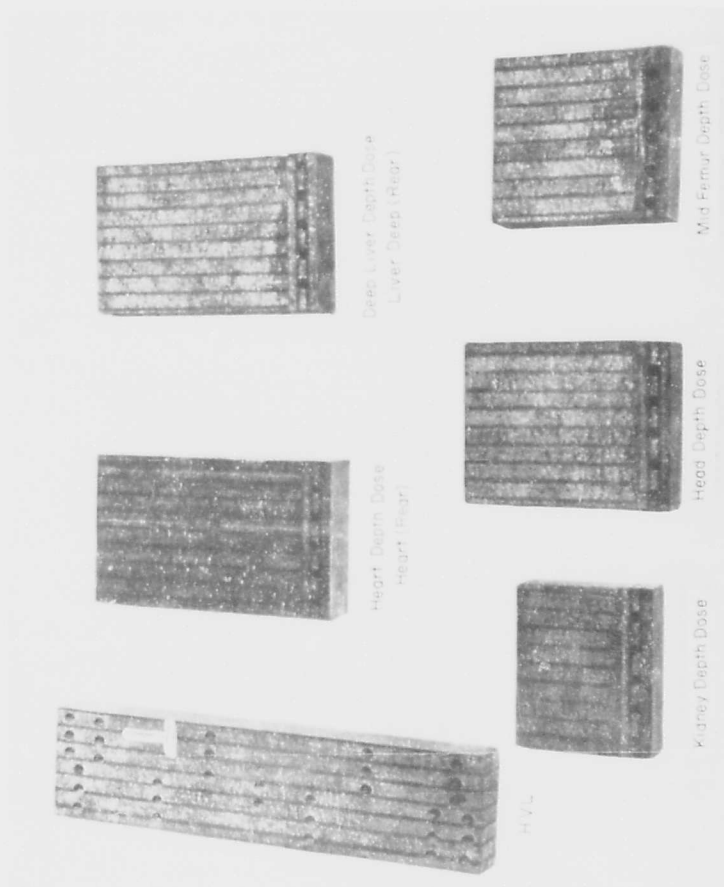 HVL
Heart Depth Dose
Heart (Rear)
Deep Liver Depth Dose
Liver Deep (Rear)
Kidney Depth Dose
Head Depth Dose
Mid Femur Depth Dose